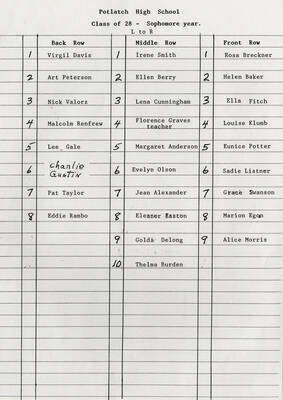 Potlatch High School
Class of 28 - Sophomore year.
L to R
Back Row Middle Row Front Row
1 Virgil Davis 1 Irene Smith 1 Rosa Breckner
2 Art Peterson 2 Ellen Berry 2 Helen Baker
3 Nick Valorz 3 Lena Cunningham 3 Ella Fitch
4 Malcolm Renfrew 4 Florence Graves 4 Louise Klumb
teacher
5 Lee Gale 5 Margaret Anderson 5 Eunice Potter
6 Charlie 6 Evelyn Olson 6 Sadie Listner
Gustin
7 Pat Taylor 7 Jean Alexander 7 Grace Swanson
8 Eddie Rambo 8 Eleanor Easton 8 Marion Egan
9 Golda Delong 9 Alice Morris
10 Thelma Burden